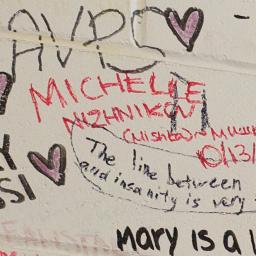 MICHELLE
NIZHNIKOV
(Mishka)
10/13/
The line between
and insanity is very
SSI
MARY IS A